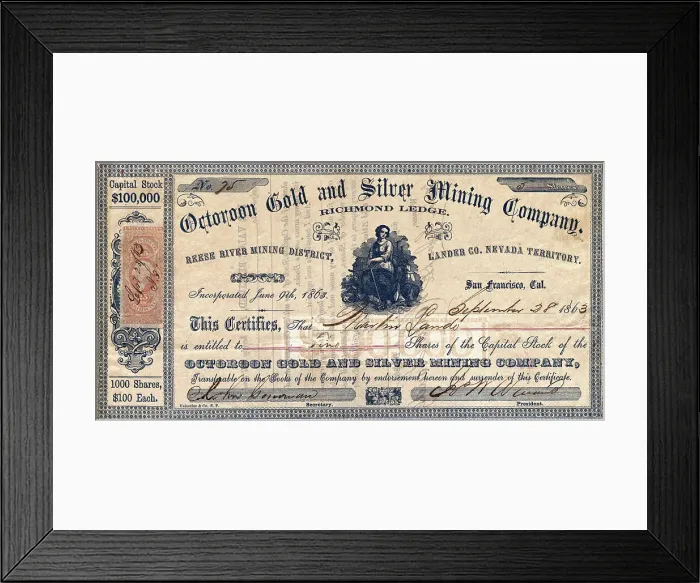 Capital Stock
$100,000
No. 75
Shares
Octoroon Gold and Silver Mining Company.
RICHMOND LEDGE.
REESE RIVER MINING DISTRICT,
LANDER CO. NEVADA TERRITORY.
San Francisco, Cal.
Incorporated June 9th, 1863.
September 28 1863
This Certifies, That Martin Landi
is entitled to Shares of the Capital Stock of the
OCTOROON GOLD AND SILVER MINING COMPANY,
Transferable on the Books of the Company by endorsement hereon and surrender of this Certificate.
1000 Shares,
$100 Each.
Secretary.
President.